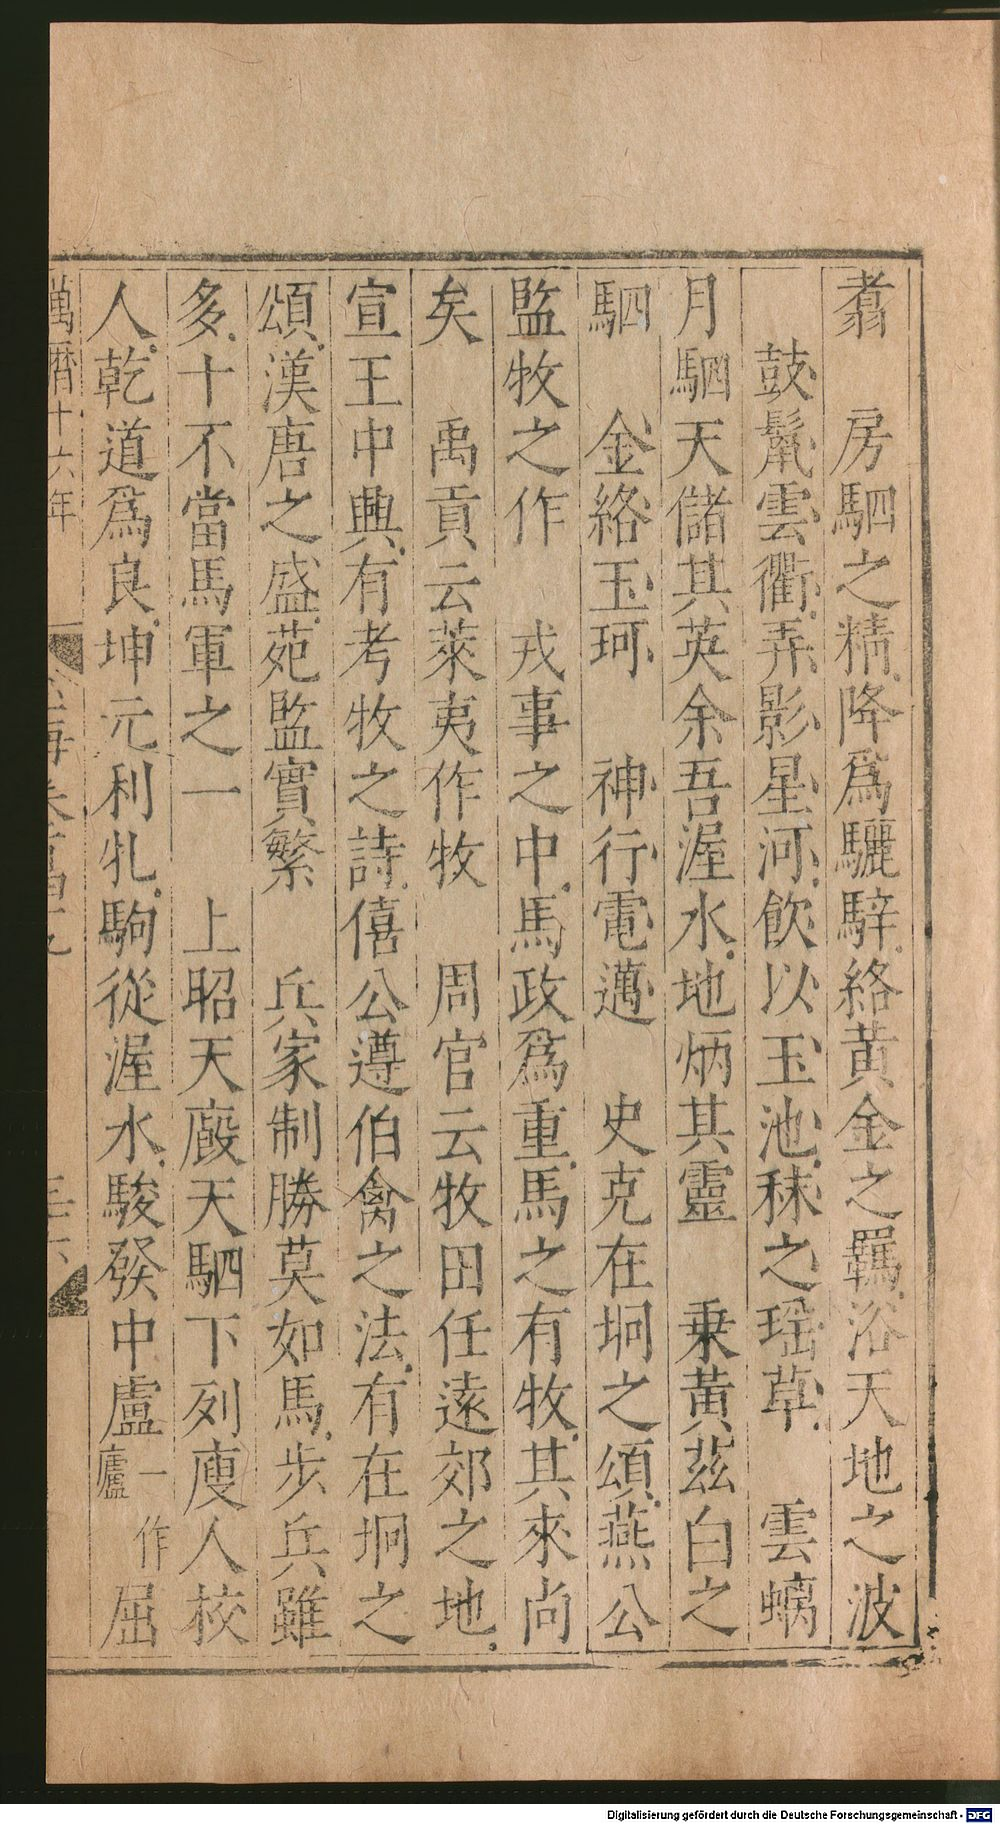 翥　房駟之精降爲驪騂絡黄金之羈浴天地之波
鼓鬛雲衢弄影星河飲以玉池秣之瑶草　雲螭
月駟天儲其英余吾渥水地炳其靈　乗黄茲白之
駟　金絡玉珂　神行電邁　史克在坰之頌燕公
監牧之作　戎事之中馬政爲重馬之有牧其來尚
矣　禹貢云萊夷作牧　周官云牧田任遠郊之地
宣王中興有考牧之詩僖公遵伯禽之法有在坰之
頌漢唐之盛苑監實繁　兵家制勝莫如馬步兵雖
多十不當馬軍之一　上昭天廄天駟下列廋人校
人乾道爲良坤元利牝駒從渥水駿發中廬一作廬屈
萬曆十六年
Digitalisierung gefördert durch die Deutsche Forschungsgemeinschaft - DFG